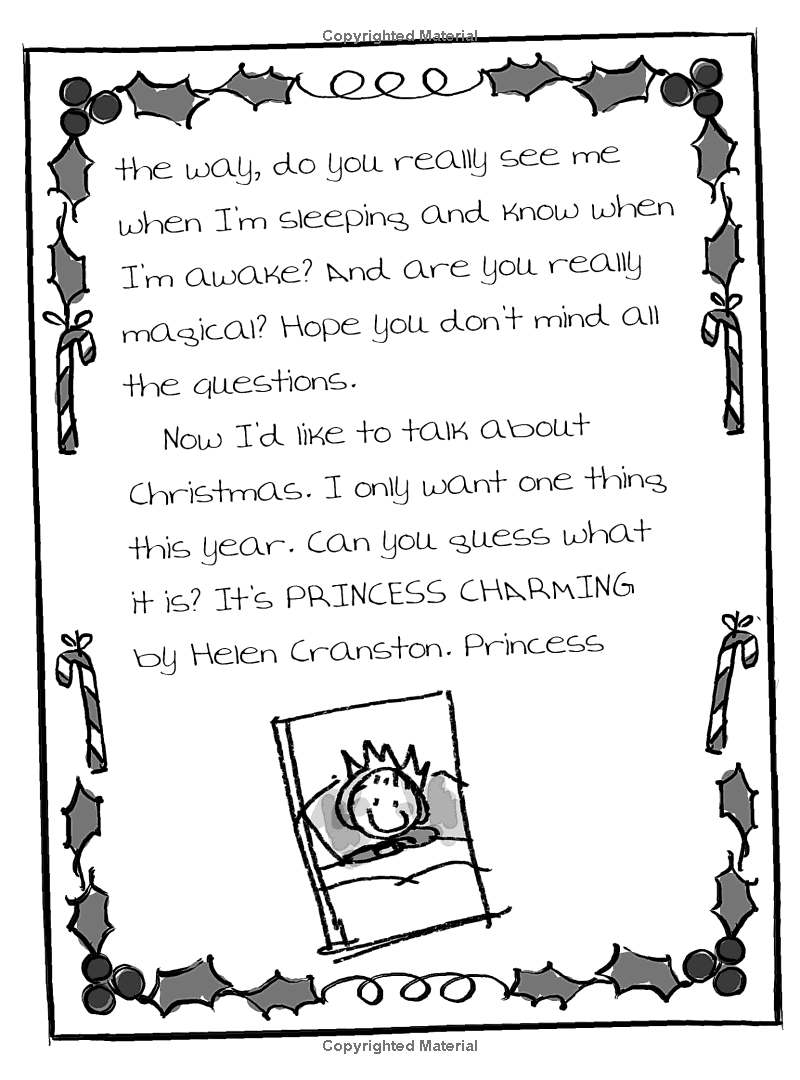 Copyrighted Material
the way, do you really see me
when I'm sleeping and know when
I'm awake? And are you really
magical? Hope you don't mind all
the questions.
Now I'd like to talk about
Christmas. I only want one thing
this year. Can you guess what
it is? It's PRINCESS CHARMING
by Helen Cranston. Princess
Copyrighted Material